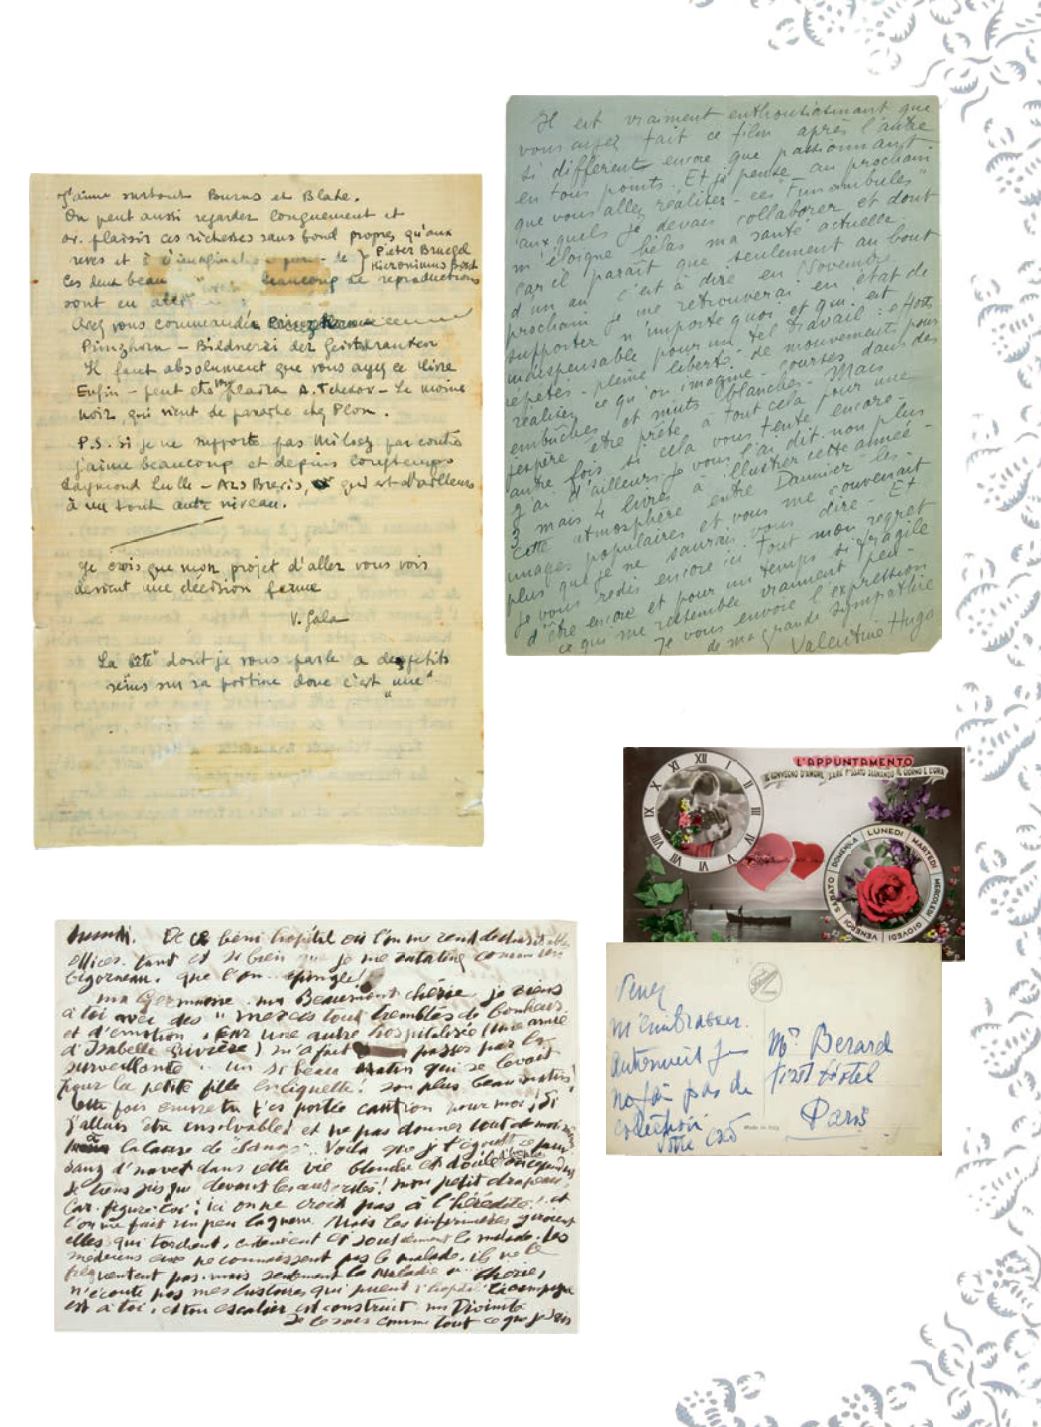 J'aime surtout Burns et Blake.
On peut aussi regarder longuement et
av. plaisir ces richesses sans fond propres qu'aux
reves et à l'imagination pure - de } Pieter Bruegel
Hieronimus Bosch
Ces deux beaucoup de reproductions
sont en
Avez vous commandé
Prinzhorn - Bildnerei der Geisteskranken
Il faut absolument que vous ayez ce livre
Enfin - peut etre vous plaira A. Tchekov - Le moine
noir, qui vient de paraitre chez Plon.
P.S. Si je ne supporte pas Milosz par contre
j'aime beaucoup et depuis longtemps
Raymond Lulle - Ars Brevis, qui est d'ailleurs
à un tout autre niveau.
Je crois que mon projet d'aller vous voir
devient une décision ferme
V. Gala
La bête" dont je vous parle a des petits
seins sur sa poitrine donc c'est "une"
Il est vraiment enthousiasmant que
vous ayez fait ce film après l'autre
si different encore que passionnant
en tous points. Et je pense au prochain
que vous allez réaliser - ces "Funambules"
auxquels je devais collaborer et dont
m'éloigne hélas ma santé actuelle
car il paraît que seulement au bout
d'un an c'est à dire en Novembre
prochain je me retrouverai en état de
supporter n'importe quoi et qui est
indispensable pour un tel travail : efforts
répétés - pleine liberté de mouvement pour
réaliser ce qu'on imagine - courses dans des
embûches et nuits blanches - Mais
j'espère être prête à tout cela pour une
autre fois si cela vous tente encore -
J'ai d'ailleurs je vous l'ai dit non plus
3 mais 4 livres à illustrer cette année -
Cette atmosphère entre Daumier - les
images populaires et vous me convenait
plus que je ne saurais vous dire - Et
je vous redis encore ici tout mon regret
d'être encore et pour un temps si fragile
ce qui me ressemble vraiment peu -
Je vous envoie l'expression
de ma grande sympathie
Valentine Hugo
L'APPUNTAMENTO
IL CONVEGNO D'AMORE, SARÀ FISSATO SEGNANDO IL GIORNO E L'ORA
XII I II III IV V VI VII VIII IX X XI
LUNEDI MARTEDI MERCOLEDI GIOVEDI VENERDI SABATO DOMENICA
Venez
m'embrasser.
Autrement je
ne fais pas de
collection
Votre
Mr Berard
First Hotel
Paris
Made in Italy
De ce béni hopital où l'on me rend
offices. tant et si bien que je me
bigorneau. que l'on épingle!
ma Germaine. ma Beaumont chérie je viens
à toi avec des "mercis tout tremblés de bonheur
et d'émotion, car une autre hospitalisée (une amie
d'Isabelle Rivière) m'a fait passer par la
surveillante un si beau matin qui se levait
pour la petite fille son plus beau matin!
Cette fois encore tu t'es portée caution pour moi! Si
j'allais être insolvable! et ne pas donner tout de moi
à la cause de "Sanas". Voilà que je t'égoutte
sang d'navet dans cette vie blonde et
Je tiens jusque devant les autorités! mon petit drapeau
Car. figure toi! ici on ne croit pas à l'hérédité! et
l'on me fait un peu la guerre. Mais les infirmières
elles qui torchent, et soutiennent le malade. Les
médecins eux ne connaissent pas le malade. ils ne le
fréquentent pas. mais seulement la maladie... Chérie,
n'écoute pas mes histoires qui puent l'hopital. la campagne
est à toi, et ton escalier est construit ma Divinité
Je le sais comme tout ce que